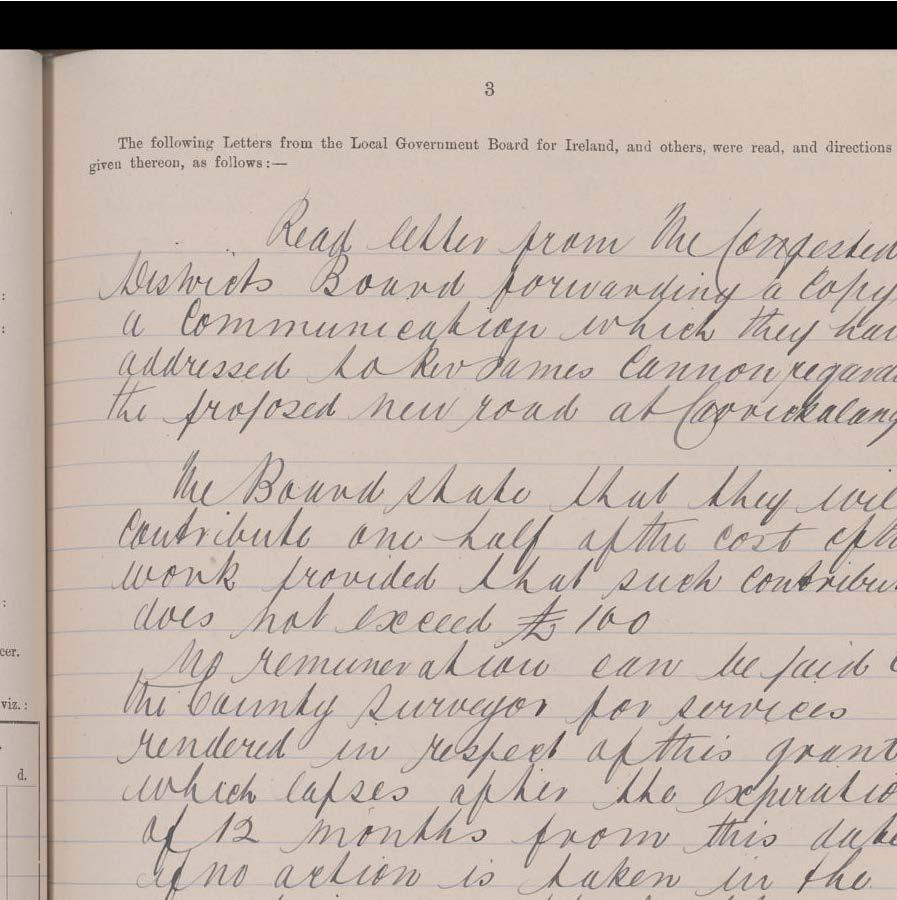 3
The following Letters from the Local Government Board for Ireland, and others, were read, and directions
given thereon, as follows:—
Read letter from The Congested
Districts Board forwarding a Copy
a Communication which they hav
addressed to Rev James Cannon regard
the proposed new road at Carrickalang
The Board state that they will
contribute one half of the cost of th
work provided that such contribut
does not exceed £100
No remuneration can be paid
the County Surveyor for services
rendered in respect of this grant
which lapses after the expiratio
of 12 months from this date
if no action is taken in the
:
:
:
cer.
viz.:
d.